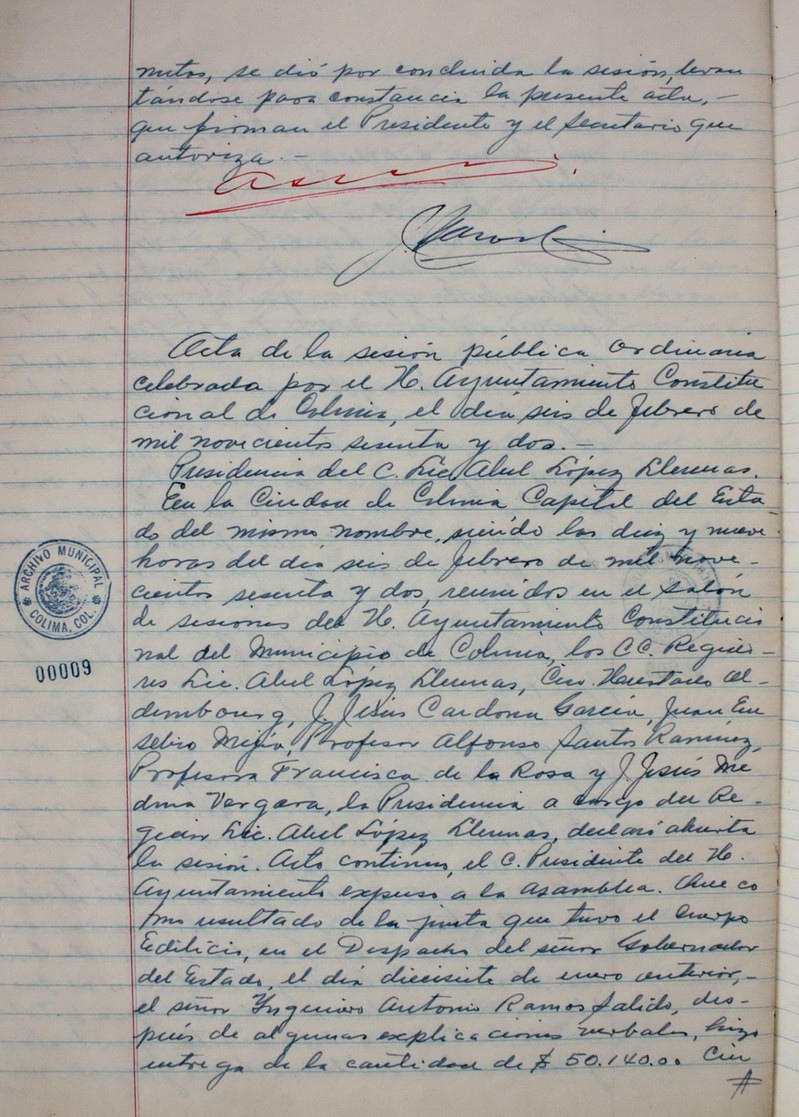 nutos, se dió por concluida la sesión, levan
tándose para constancia la presente acta, -
que firman el Presidente y el Secretario que
autoriza. -
Acta de la sesión pública Ordinaria
celebrada por el H. Ayuntamiento Constitu
cional de Colima, el día seis de febrero de
mil novecientos sesenta y dos. -
Presidencia del C. Lic. Abel López Llerenas.
En la Ciudad de Colima Capital del Esta-
do del mismo nombre, siendo las diez y nueve
horas del día seis de febrero de mil nove-
cientos sesenta y dos, reunidos en el salón
de sesiones del H. Ayuntamiento Constitucio
nal del Municipio de Colima, los CC. Regido-
res Lic. Abel López Llerenas, Ol-
denbourg, J. Jesús Cardona García, Juan Eu
sebio Mejía, Profesor Alfonso Santos Ramírez,
Profesora Francisca de la Rosa y J. Jesús Me
dina Vergara, la Presidencia a cargo del Re-
gidor Lic. Abel López Llerenas, declaró abierta
la sesión. Acto continuo, el C. Presidente del H.
Ayuntamiento expuso a la asamblea. Que co
mo resultado de la junta que tuvo el Cuerpo
Edilicio, en el Despacho del señor Gobernador
del Estado, el día diecisiete de enero anterior, -
el señor Yngeniero Antonio Ramos Salido, des-
pués de algunas explicaciones verbales, hizo
entrega de la cantidad de $ 50.140.00 Cin
ARCHIVO MUNICIPAL
COLIMA, COL.
00009